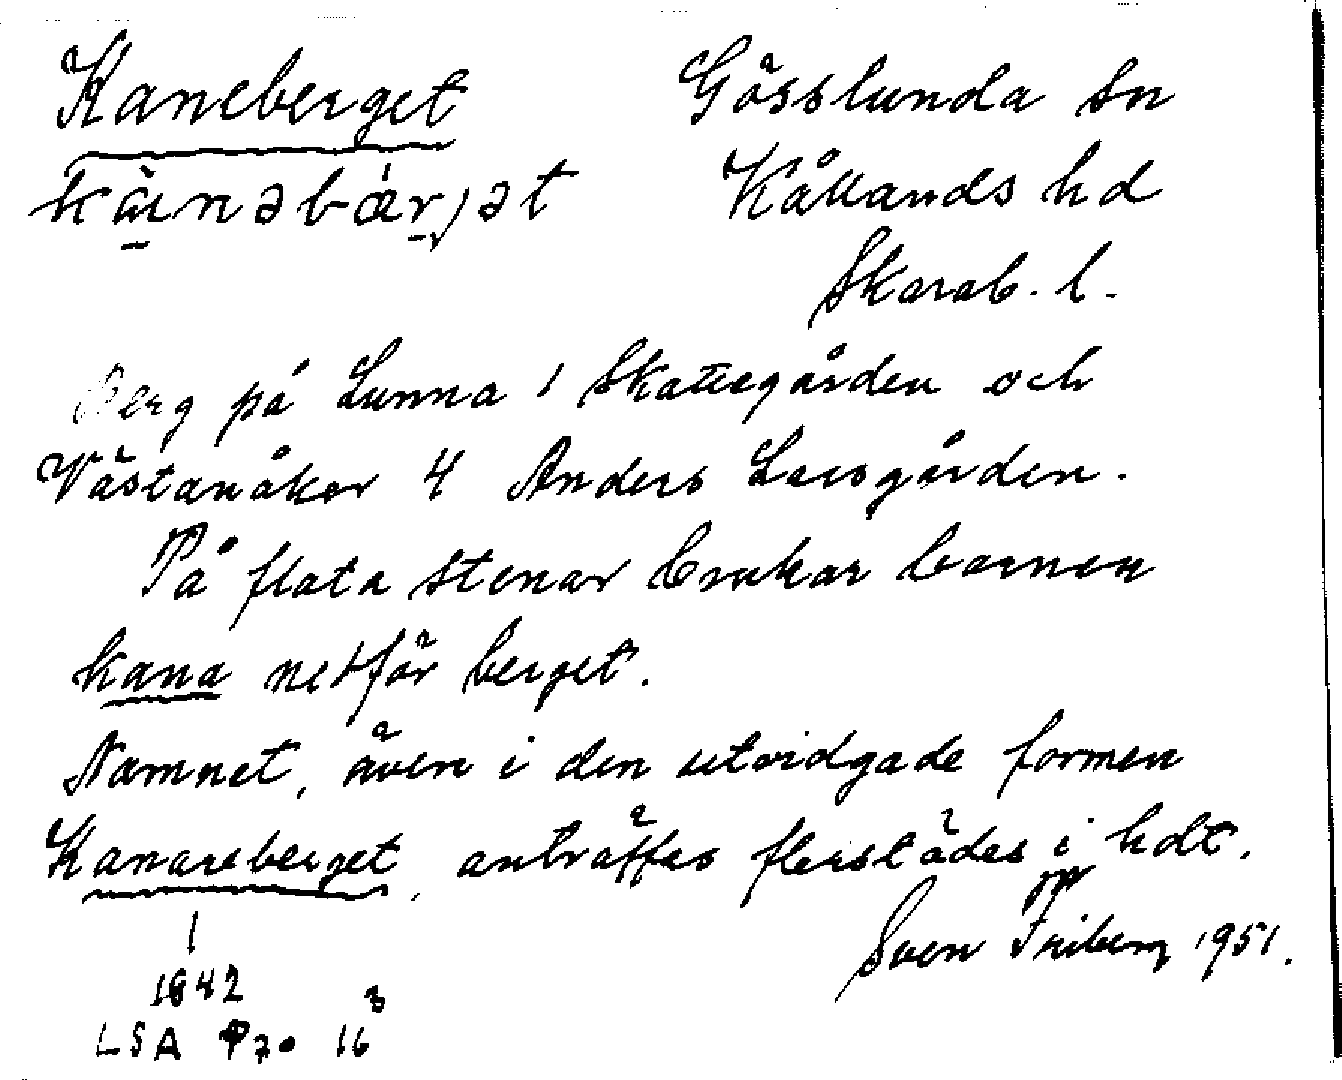 Kaneberget
Gösslunda sn
Kållands hd
Skarab. l.
Berg på Lunna 1 Skattegården och
Västanåker 4 Anders Larsgården.
På flata stenar brukar barnen
kana netför berget.
Namnet, även i den utvidgade formen
Kanareberget, anträffas flerstädes i hdt.
Sven Friberg 1951.
1842
LSA P70 16³